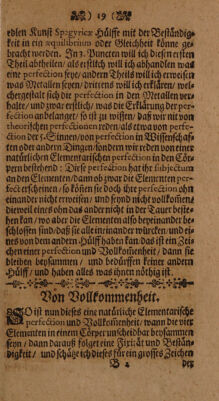 ) 19 (
edlen Kunst Spagyricæ Hülffe mit der Beständig-
keit in ein æquilibrium oder Gleichheit könne ge-
bracht werden. In 3. Puncten will ich diesen ersten
Theil abtheilen/ als erstlich will ich abhandlen was
eine perfection seye/ andern Theils will ich erweisen
was Metallen seyen/ drittens will ich erklären/ wel-
chergestalt sich die perfection in den Metallen ver-
halte/ und zwar erstlich/ was die Erklärung der per-
fection anbelanget/ so ist zu wissen/ daß wir nit von
theorischen perfectionen reden/ als etwa von perfe-
ction der 5. Sinnen/ von perfection in Wissenschaff-
ten oder andern Dingen/ sondern wir reden von einer
natürlichen Elementarischen perfection in den Cör-
pern bestehend; Diese perfection hat ihr subjectum
an den Elementen/ dann ob zwar die Elementen per-
fect erscheinen/ so können sie doch ihre perfection ohn
einander nicht erweisen/ und seynd nicht vollkommen/
dieweil eines ohn das ander nicht in der Taur beste-
hen kan/ wo aber die Elementen also beyeinander be-
schlossen sind/ daß sie alle in einander würcken/ und ei-
nes von dem andern Hülff haben kan/ das ist ein Zei-
chen einer perfection und Vollkom̃enheit/ dann sie
bleiben beysammen/ und bedürffen keiner andern
Hülff/ und haben alles was ihnen nöthig ist.
Von Vollkommenheit.
SO ist nun dieses eine natürliche Elementarische
perfection und Vollkom̃enheit/ wann die vier
Elementen in einem Cörper unscheidbar beysammen
seyn/ dann darauß folget eine Fixität und Bestän-
digkeit/ und schätze ich dieses für ein grosses Zeichen
B 2 der